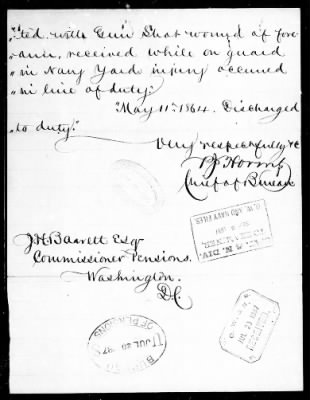 "ted with Gun Shot wound of fore-
"arm, received while on guard
"in Navy Yard injury occured
"in line of duty."
"May 11th 1864. Discharged
"to duty."
Very respectfully &c
Chief of Bureau
J.H. Barrett Esqr
Commissioner Pensions.
Washington.
D.C.
A. & N. DIV.
EXAMINER
O.W. AND NAVY FILES
BUREAU
OF PENSIONS
JUL 26 '97